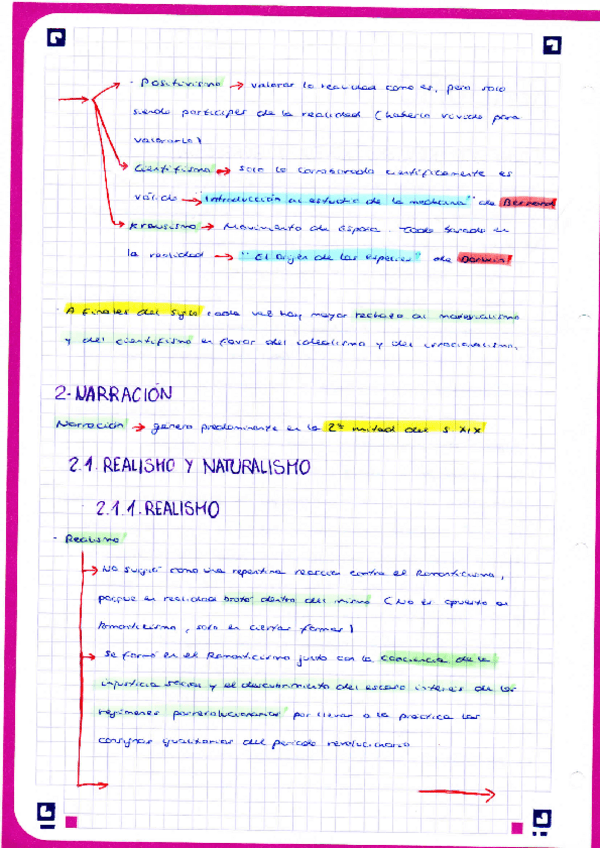 - Positivismo → valorar la realidad como es, pero solo
siendo participes de la realidad (haberlo vivido para
valorarlo)
Cientifismo → solo lo corroborado cientificamente es
válido → "Introducción al estudio de la medicina" de Bernard
Krausismo → Movimiento de España. Todo basado en
la realidad → "El origen de las especies" de Darwin
A finales del siglo cada vez hay mayor rechazo al materialismo
y del cientifismo en favor del idealismo y del irracionalismo.
2-NARRACIÓN
Narración → genero predominante en la 2ª mitad del s XIX
2.1. REALISMO Y NATURALISMO
2.1.1. REALISMO
- Realismo
→ No surgió como una repentina reaccion contra el Romanticismo,
porque en realidad brotó dentro del mismo (No es opuesto al
Romanticismo, solo en ciertas formas)
→ Se formó en el Romanticismo junto con la conciencia de la
injusticia social y el descubrimiento del escaso interes de los
regímenes postrevolucionarios por llevar a la practica las
consignas igualitarias del periodo revolucionario